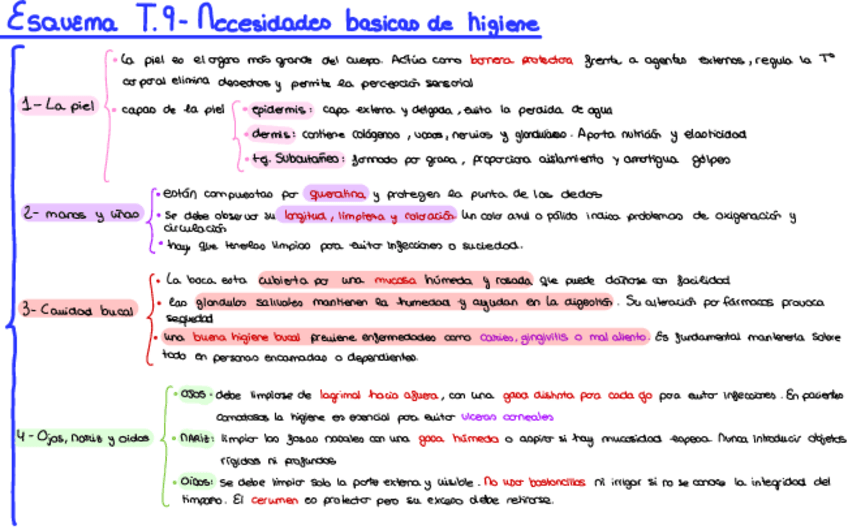 Esquema T.9- Necesidades basicas de higiene
1- La piel
• La piel es el organo más grande del cuerpo. Actúa como barrera protectora frente a agentes externos, regula la Tº
corporal elimina desechos y permite la percepción sensorial
• capas de la piel
• epidermis: capa externa y delgada, evita la perdida de agua
• dermis: contiene colágenos, vasos, nervios y glandulas. Aporta nutrición y elasticidad
• tej. Subcutáneo: formado por grasa, proporciona aislamiento y amortigua golpes
2- manos y uñas
• están compuestas por queratina y protegen la punta de los dedos
• se debe observar su longitud, limpieza y coloración. Un color azul o pálido indica problemas de oxigenación y
circulación
• hay que tenerlas limpias para evitar infecciones o suciedad.
3- Cavidad bucal
• La boca esta cubierta por una mucosa húmeda y rosada que puede dañarse con facilidad
• las glandulas salivales mantienen la humedad y ayudan en la digestión. Su alteración por fármacos provoca
sequedad
• una buena higiene bucal previene enfermedades como caries, gingivitis o mal aliento. Es fundamental mantenerla sobre
todo en personas encamadas o dependientes.
4- Ojos, nariz y oidos
• OJOS: debe limpiarse de lagrimal hacia afuera, con una gasa distinta para cada ojo para evitar infecciones. En pacientes
comatosos la higiene es esencial para evitar ulceras corneales
• NARIZ: limpiar las fosas nasales con una gasa húmeda o aspirar si hay mucosidad espesa. Nunca introducir objetos
rígidos ni profundos
• Oidos: se debe limpiar solo la parte externa y visible. No usar bastoncillos ni irrigar si no se conoce la integridad del
timpano. El cerumen es protector pero su exceso debe retirarse.